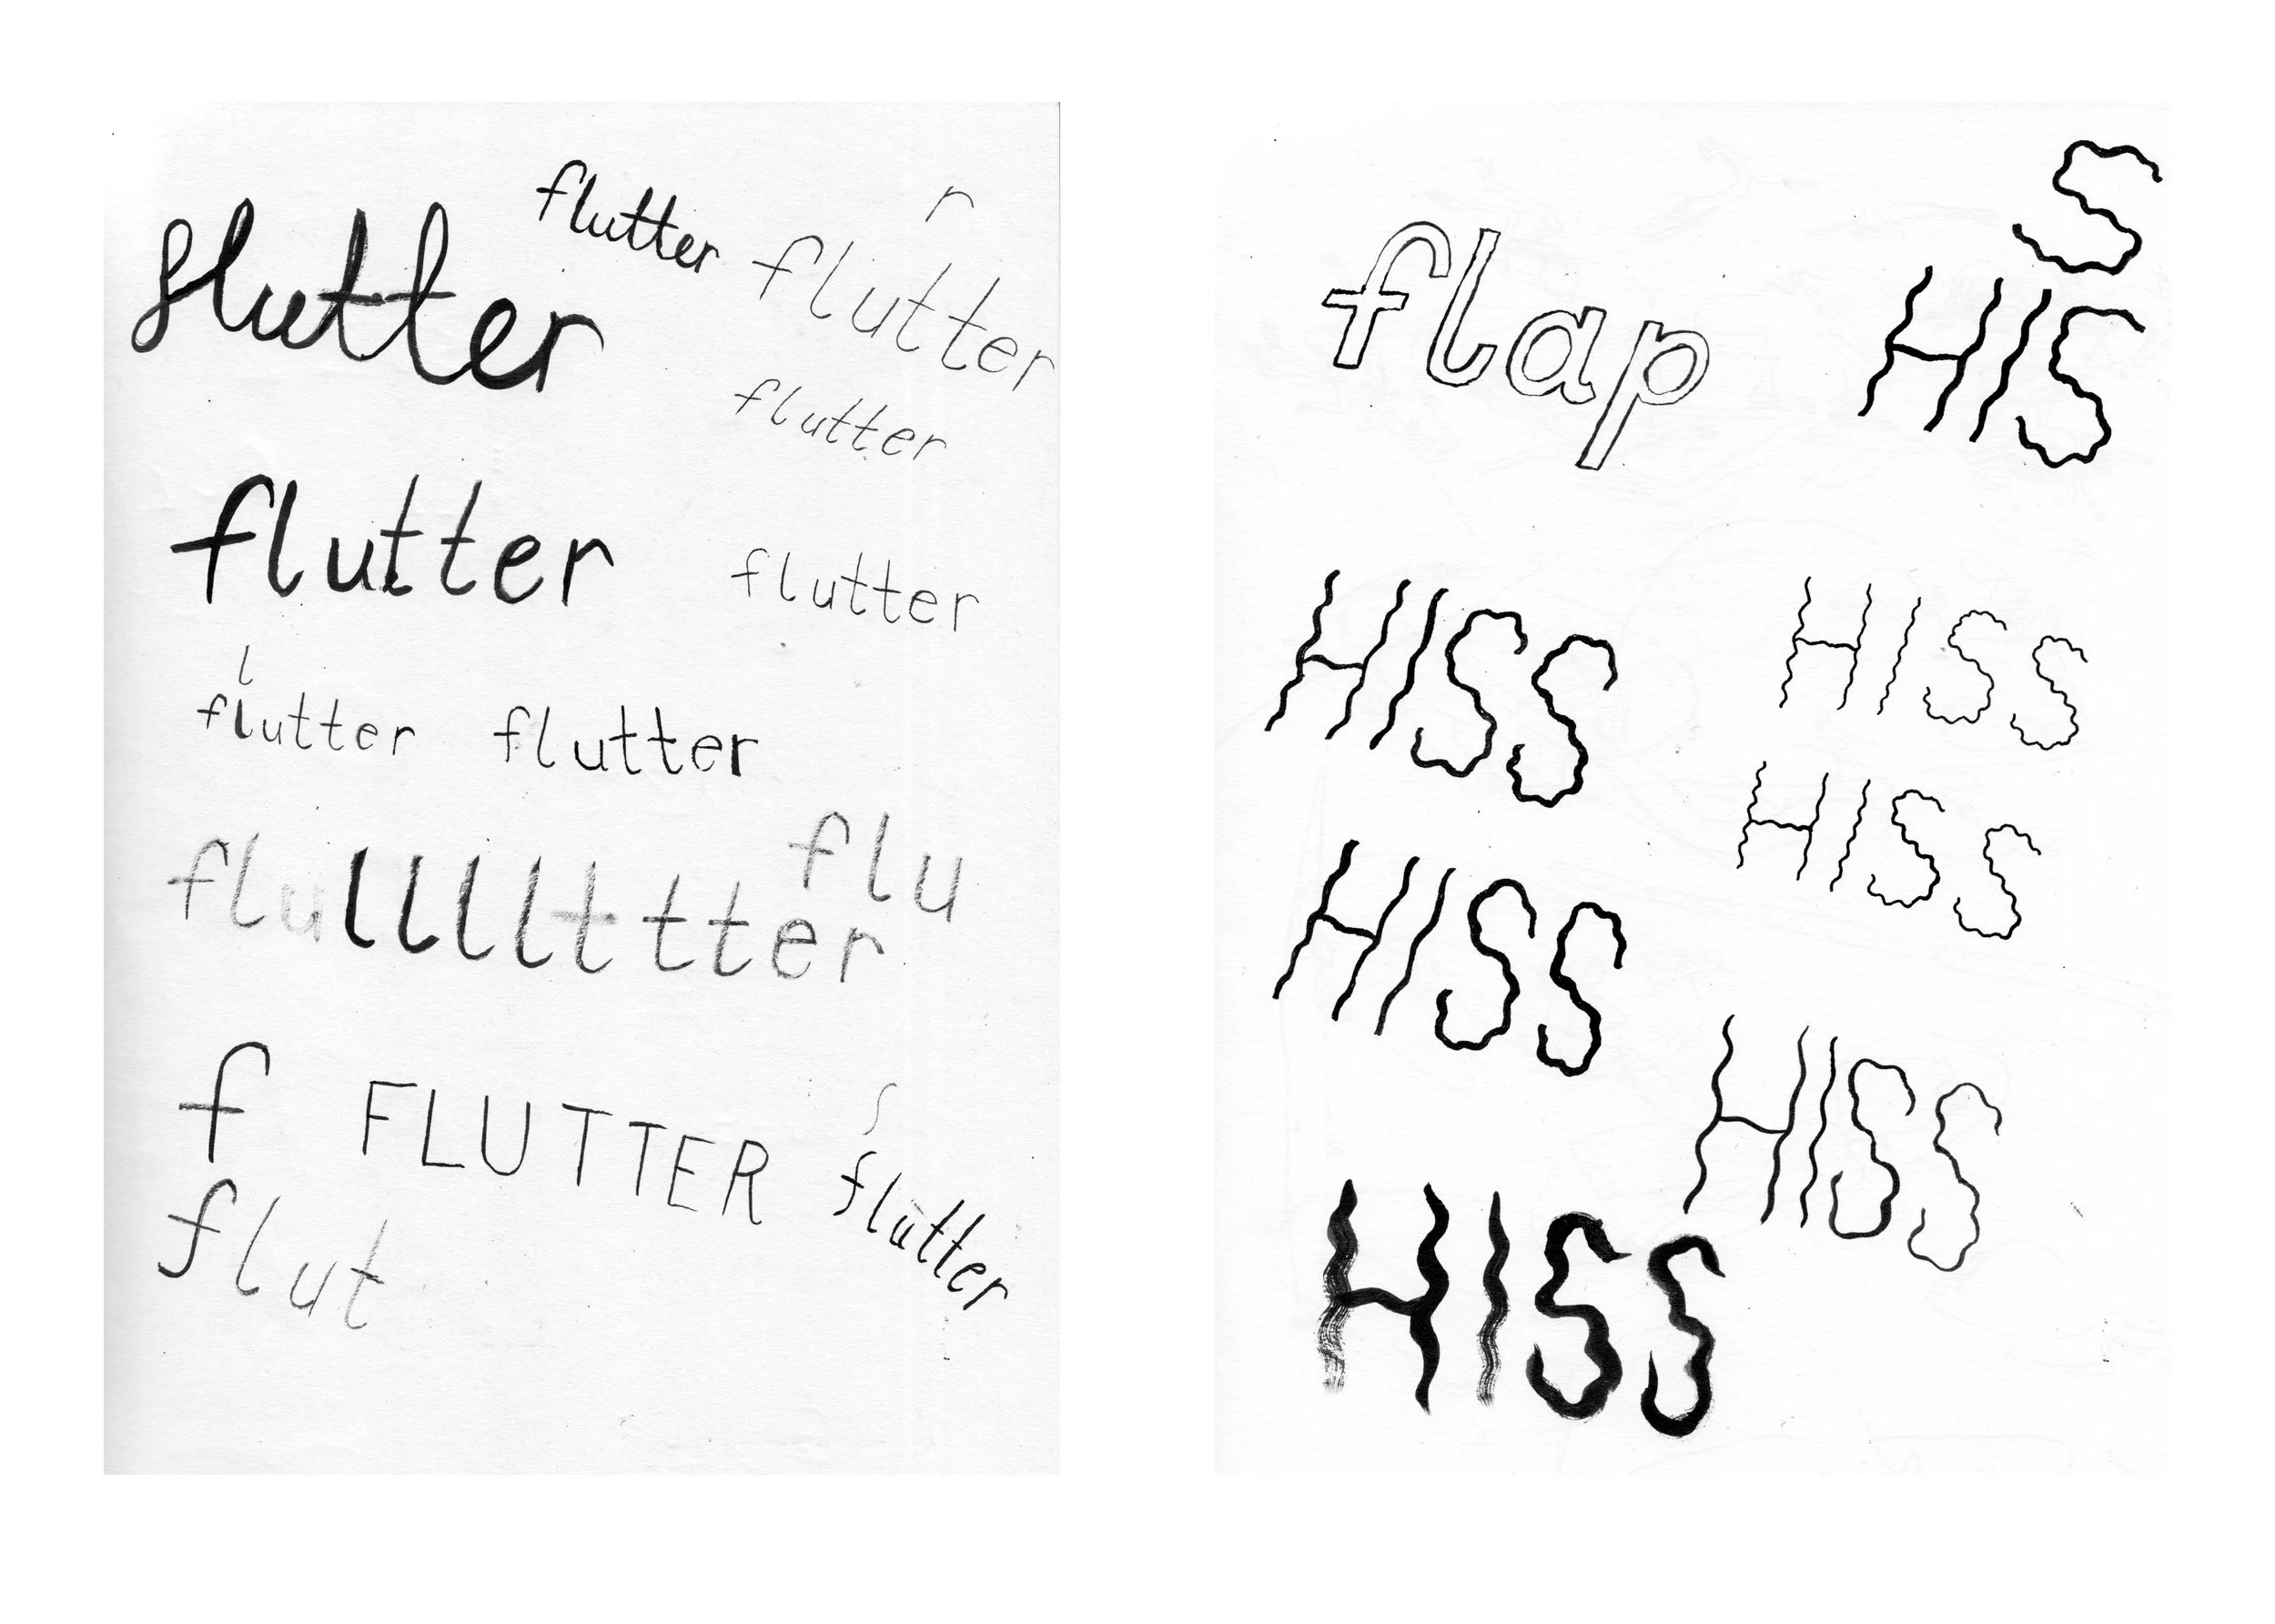 flutter
r
flutter
flutter
flutter
flutter
flutter
l
flutter
flutter
flu
flullllltttter
f
FLUTTER
flutter
flut
flap
S
HIS
HISS
HISS
HISS
HISS
HISS
HISS